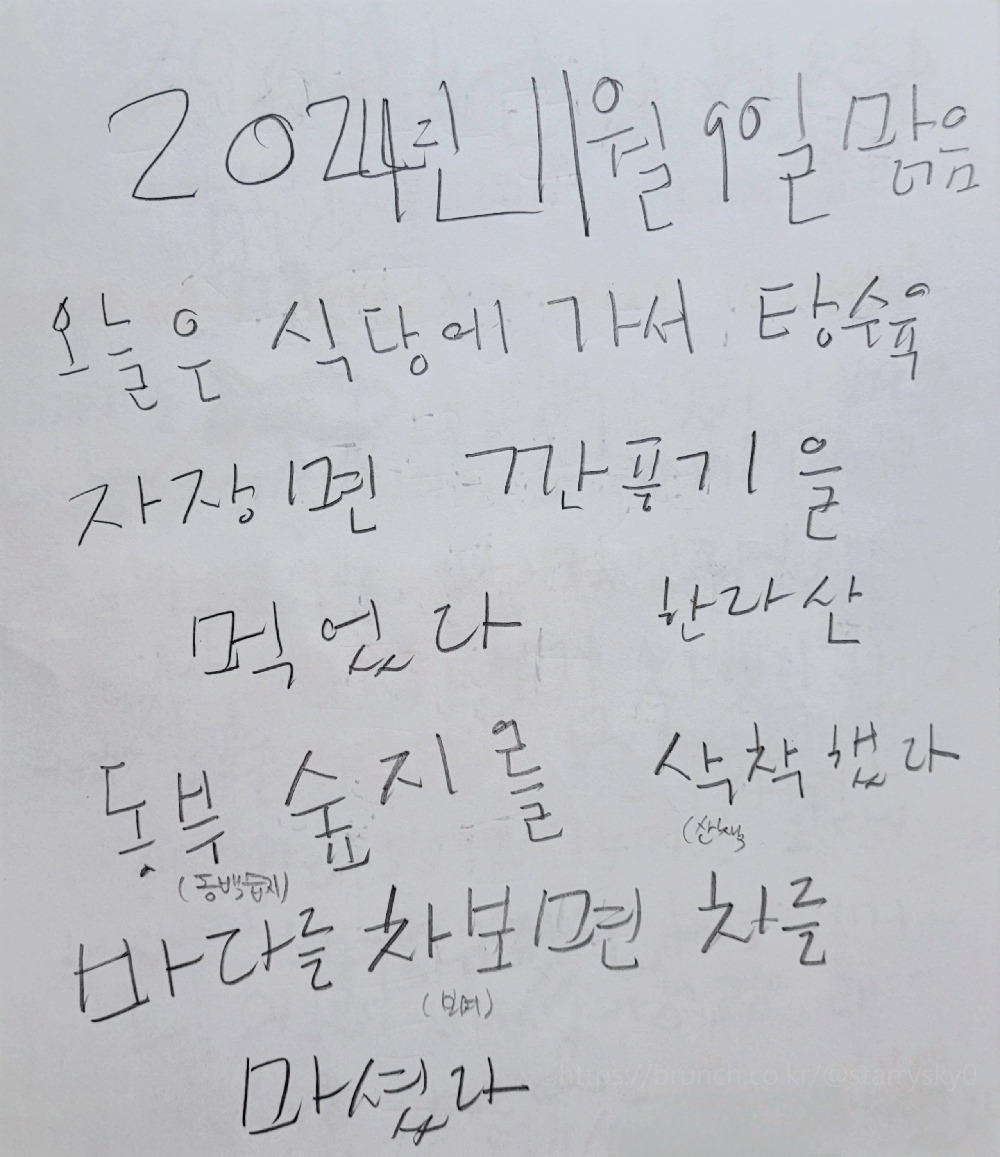 2024년 11월 9일 맑음
오늘은 식당에 가서 탕수육
자장면 깐풍기을
먹었다 한라산
동부 숲지를 삭착했다
(동백습지) (산책
바다를 차보면 차를
(보며)
마셨다
https://brunch.co.kr/@starrysky0